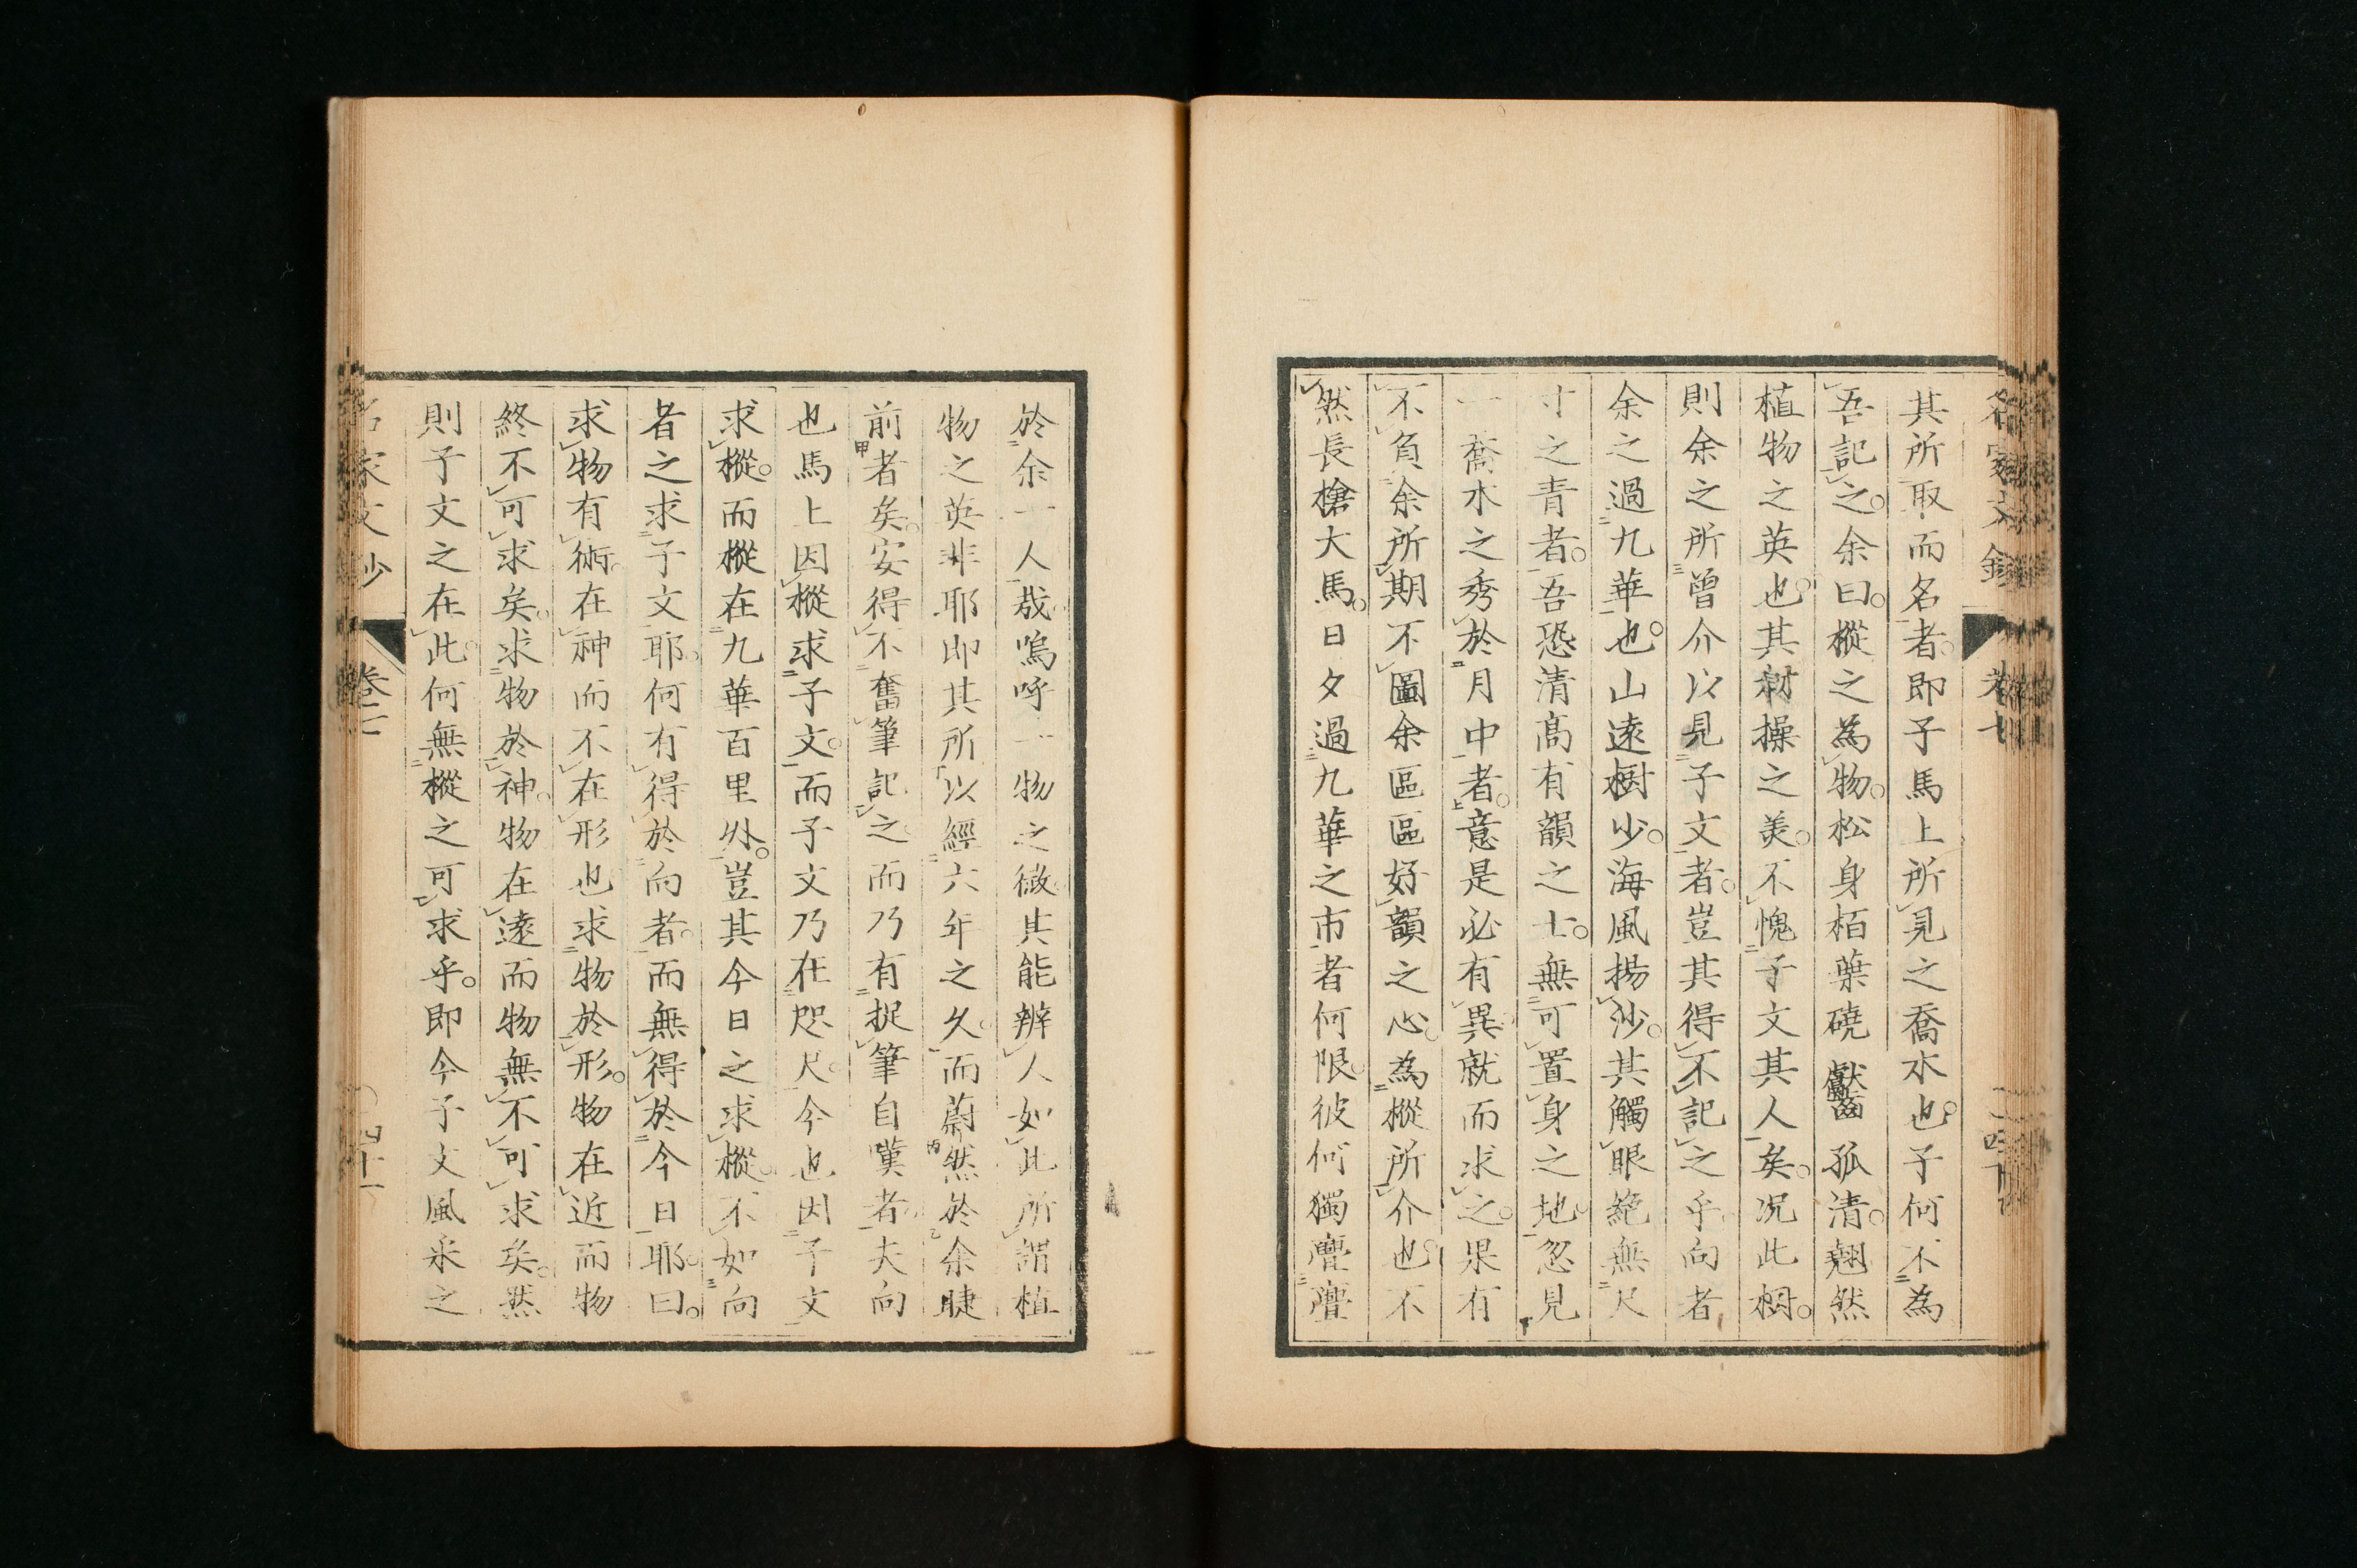 其所取而名者。即子馬上所見之喬木也。子何不為
吾記之。余曰。樅之為物。松身栢葉磽巘孤清。翹然
植物之英也。其材操之美。不愧子文其人矣。况此樹。
則余之所曾介以見子文者。豈其得不記之乎向者
余之過九華也。山遠樹少。海風揚沙。其觸眼絶無尺
寸之青者。吾恐清高有韻之士。無可置身之地。忽見
一喬木之秀於月中者。意是必有異就而求之。果有
不負余所期不圖余區區好韻之心。為樅所介也。不
然長槍大馬。日夕過九華之市者何限。彼何獨亹亹
於余一人哉嗚呼一物之微其能辨人如此所謂植
物之英非耶即其所以經六年之久。而蔚然於余睫
前者矣。安得不奮筆記之而乃有捉筆自嘆者夫向
也馬上因樅求子文。而子文乃在咫尺。今也因子文
求樅。而樅在九華百里外。豈其今日之求樅。不如向
者之求子文耶。何有得於向者。而無得於今日耶。曰。
求物有術。在神而不在形也求物於形。物在近而物
終不可求矣。求物於神。物在遠而物無不可求矣。然
則子文之在此。何無樅之可求乎。即今子文風采之
名家文抄
卷二
四十一